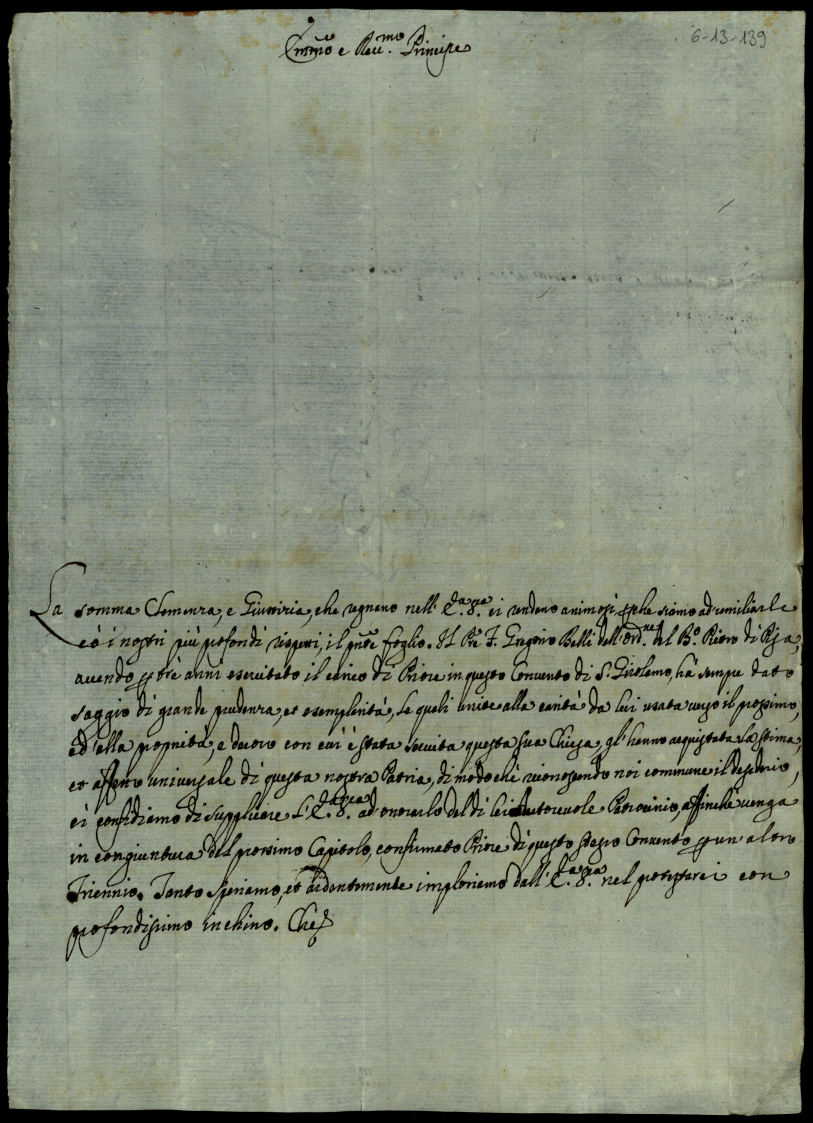 6-13-139
Em̃o e Reu.mo Principe
La somma Clemenza, e Giustizia, che regnano nell' E.a V.ra ci rendono animosi, perche siamo ad umiliarle
co i nostri più profondi rispetti, il pnte foglio. Il Pre F. Gregorio Belli dell' Ord.ne del B.o Pietro di Pisa,
auendo per trè anni esercitato il carico di Priore in questo Conuento di S. Girolamo, hà sempre dato
saggio di grande prudenza, et esemplarità, le quali unite alla carità da lui usata uerso il prossimo,
ed alla proprietà, e decoro con cui è stata seruita questa sua Chiesa, gl' hanno acquistata la stima,
et affetto uniuersale di questa nostra Patria, di modo chè riconoscendo noi commune il desiderio,
ci confidiamo di supplicare L' E.a V.ra ad onorarlo del di lei autoreuole Patrocinio, affinchè uenga
in congiuntura del prossimo Capitolo, confirmato Priore di questo stesso Conuento per un altro
Triennio. Tanto speriamo, et ardentemente imploriamo dall' E.a V.ra nel protestarci con
profondissimo inchino. Che